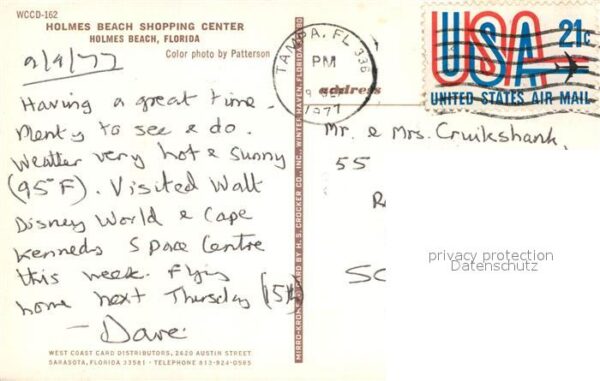 WCCD-162
HOLMES BEACH SHOPPING CENTER
HOLMES BEACH, FLORIDA
Color photo by Patterson
9/9/77
Having a great time.
Plenty to see & do.
Weather very hot & sunny
(95°F). Visited Walt
Disney World & Cape
Kennedy Space Centre
this week. Flying
home next Thursday (15th)
- Dave.
WEST COAST CARD DISTRIBUTORS, 2620 AUSTIN STREET
SARASOTA, FLORIDA 33581 · TELEPHONE 813-924-0585
MIRRO-KROME CARD BY H. S. CROCKER CO., INC., WINTER HAVEN, FLORIDA
TAMPA, FL 336
PM
9 SEP
1977
USA 21c
UNITED STATES AIR MAIL
address
Mr. & Mrs. Cruikshank,
55
SC
privacy protection
Datenschutz